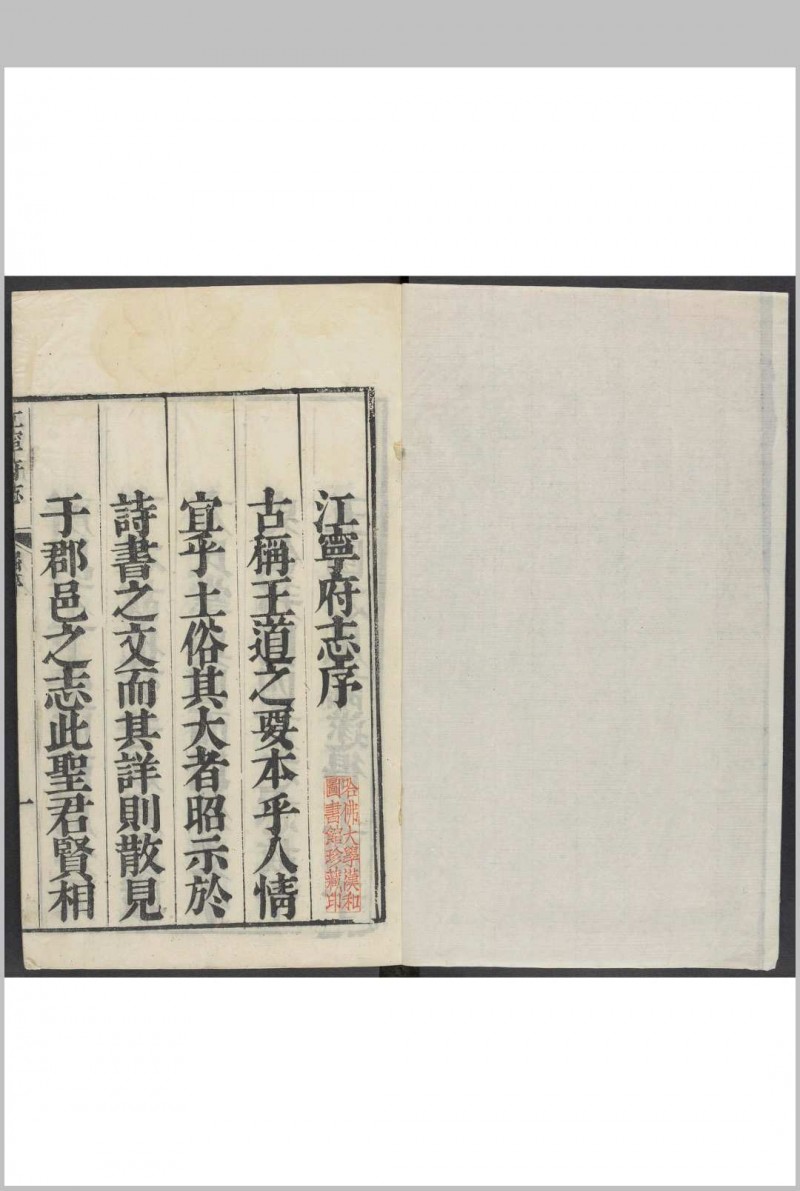 江寧府志序
古稱王道之要本乎人情
宜乎土俗其大者昭示於
詩書之文而其詳則散見
于郡邑之志此聖君賢相
哈佛大學漢和
圖書館珍藏印
江寧府志
一